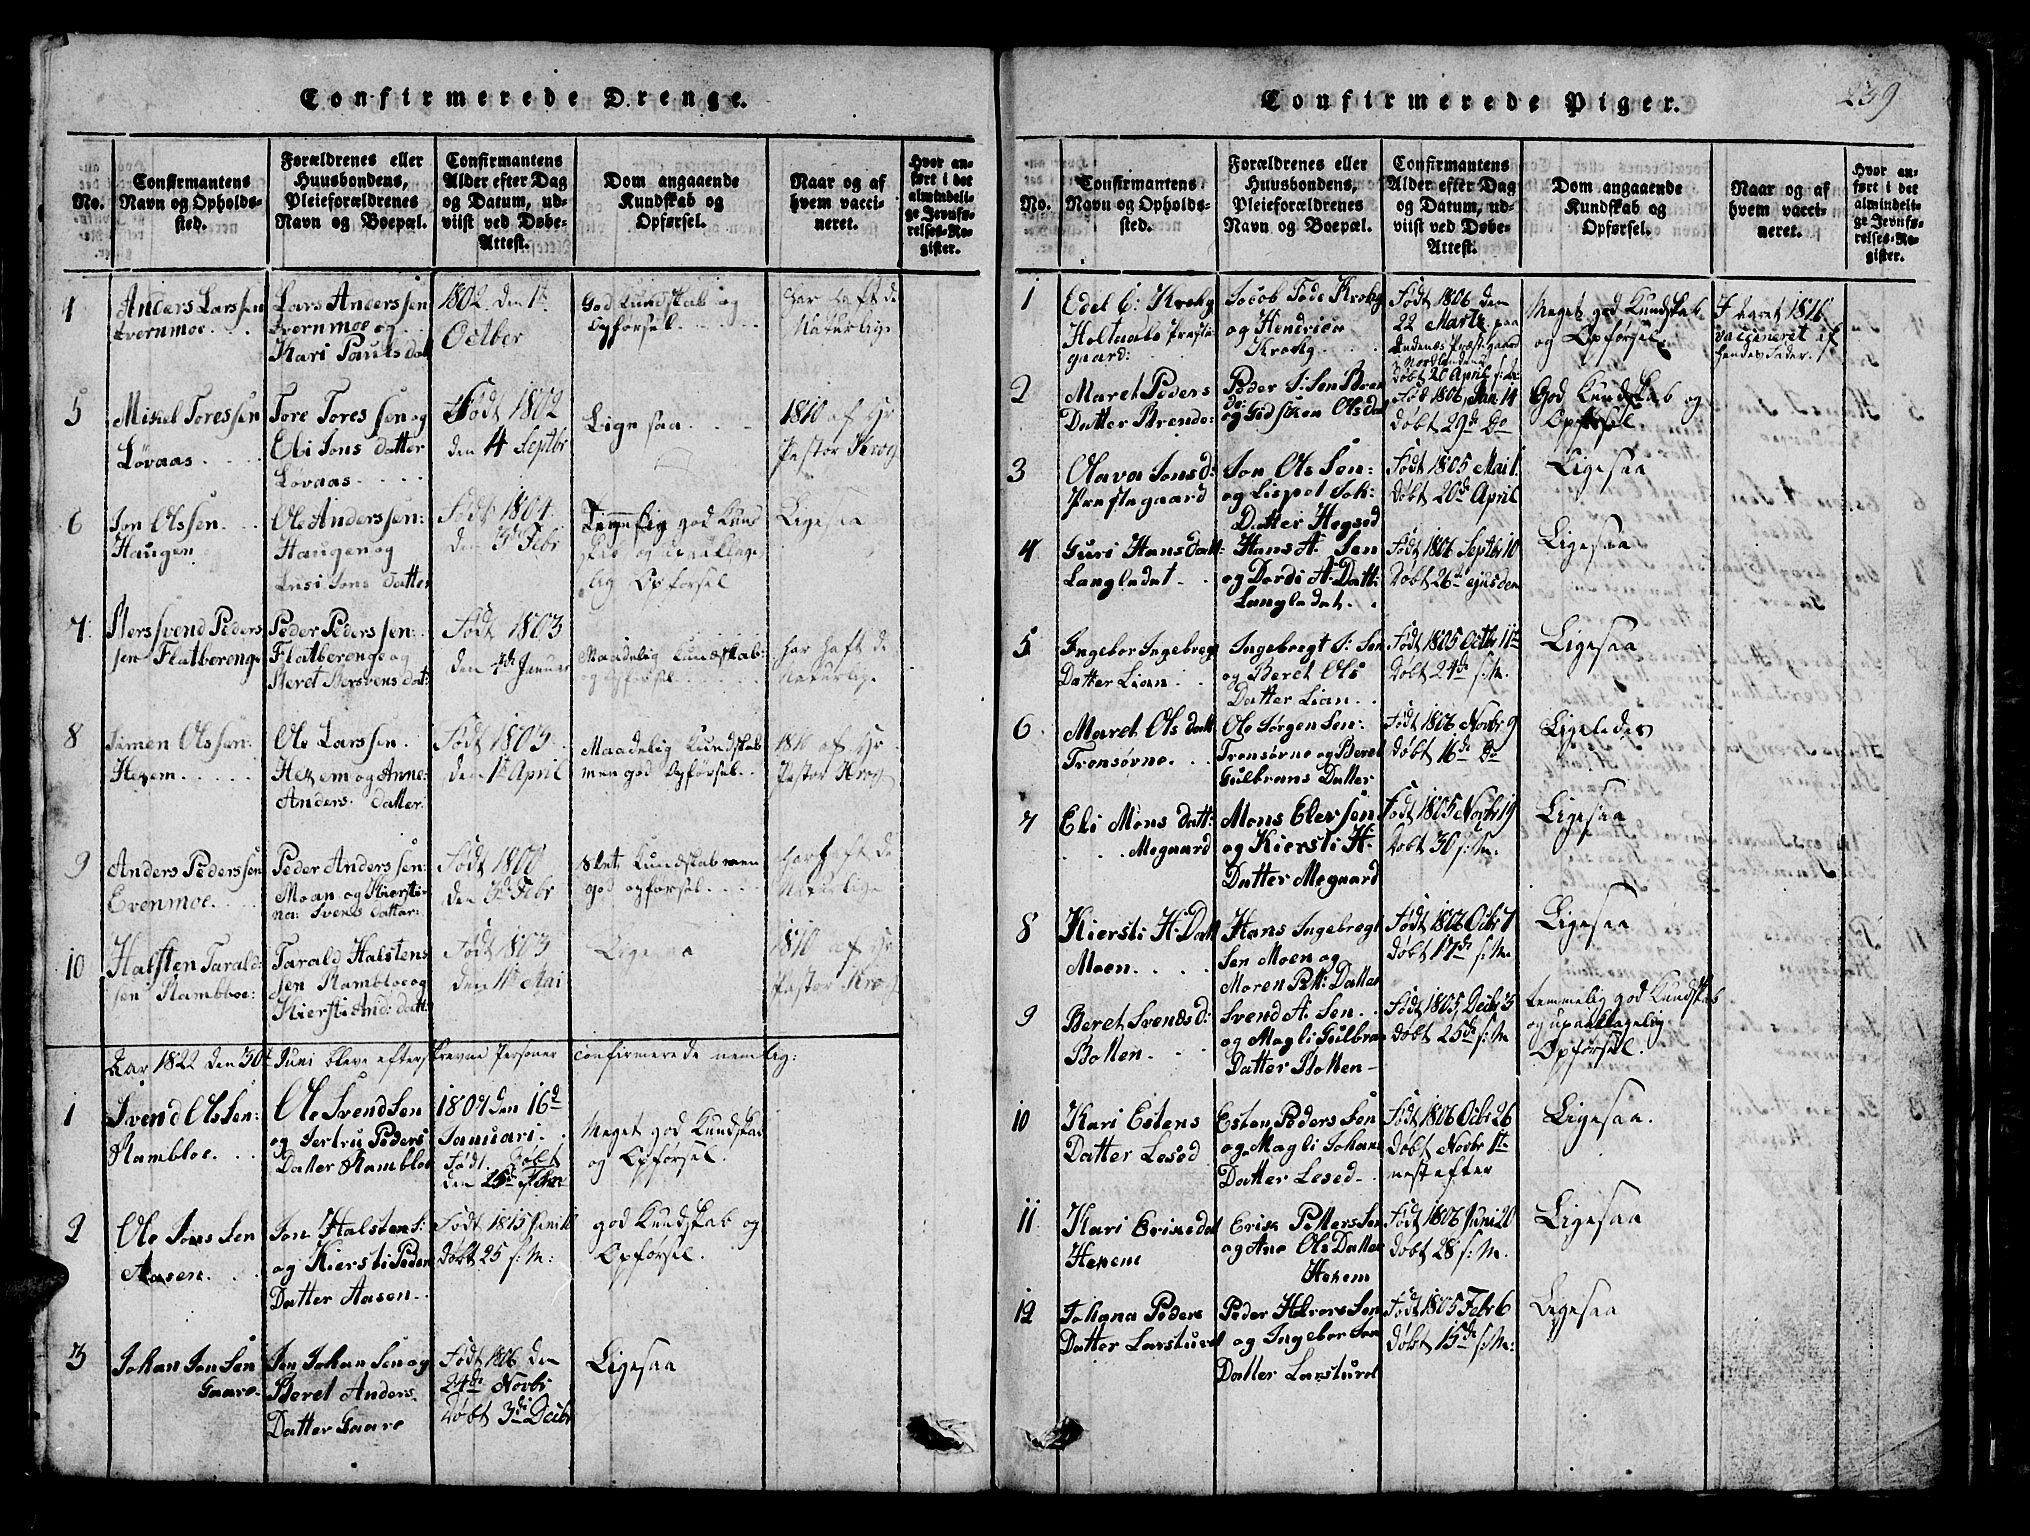 Confirmerede Drenge.
No.
Confirmantens
Navn og Opholds-
sted.
Forældrenes eller
Huusbondens,
Pleieforældrenes
Navn og Boepæl.
Confirmantens
Alder efter Dag
og Datum, ud-
viist ved Døbe-
Attest.
Dom angaaende
Kundskab og
Opførsel.
Naar og af
hvem vacci-
neret.
Hvor an-
ført i det
almindeli-
ge Jevnfø-
relses-Re-
gister.
4
Anders Larssen
Evernmoe
Lars Anderssen
Evernmoe og
Kari Pauls dat
1802 den 1te
Octber
God Kundskab og
Opførsel
har haft de
Naturlige
5
Mikel Toressen
Løvaas
Tore Toressen og
Eli Jons datter
Lovaas
Født 1802
den 4 Septbr
Ligesaa
1810 af Hr
Pastor Krog
6
Jon Olssen
Haugen
Ole Anderssen:
Haugen og
Jons datter
Født 1804
den 3de Febr
god Kund
lig Opførsel
Ligesaa
7
Mersvend Peders
sen Flatberenge
Peder Pederssen:
Flatberenge og
Meret Mersvens dat:
Født 1803
den Januar
Maadelig Kundskab
og Opførsel
har haft de
Naturlige
8
Simen Olssen:
Hexem
Ole Larssen
Hexem og Anne
Anders datter
Født 1803
den 1te April
Maadelig Kundskab
men god Opførsel
1810 af Hr
Pastor Krog
9
Anders Pederssen
Evenmoe
Peder Anderssen:
Moan og Kiersti-
na: Svends datter:
Født 1800
den 3de Febr
Slet Kundskab men
god opførsel
har haft de
Naturlige
10
Halsten Tarald:
sen Rambloe:
Tarald Halstens
sen Rambloe og
Kiersti And: datt
Født 1803
den Mai
Ligesaa
1810 af Hr
Pastor Krog
Aar 1822 den 30t Juni bleve efterskrevne Personer confirmerede nemlig:
1
Svend Olssen:
Rambloe
Ole Svendsen
og Jertru Peders
Datter Rambloe
1807 den 16d
Januari
Født. Døbt
den 15de Febr
Meget god Kundskab
og Opførsel.
2
Ole Jons Sen
Aasen
Jon Halsten S:
og Kiersti Peder
Datter Aasen
Født 1805 Juni
Døbt 25 s: M:
god Kundskab og
Opførsel.
3
Johan Jon Sen
Gaare
Jon Johan Sen og
Beret Anders
Datter Gaare
Født 1806 den
24de Novbr
Døbt 3de Decbr
Ligesaa
Confirmerede Piger.
239
No.
Confirmantens
Navn og Opholds-
sted.
Forældrenes eller
Huusbondens,
Pleieforældrenes
Navn og Boepæl.
Confirmantens
Alder efter Dag
og Datum, ud-
viist ved Døbe-
Attest.
Dom angaaende
Kundskab og
Opførsel.
Naar og af
hvem vacci-
neret.
Hvor an-
ført i det
almindeli-
ge Jevnfø-
relses-Re-
gister.
1
Edel C: Krohg
Holtaals Præste
gaard:
Jacob Tode Krohg
og Hendrica
Krohg
Født 1806 den
22 Martz paa
Andenes Præstegaard
i Nordlandene
Døbt 20 April
Meget god Kundskab
og Opførsel
I Aaret 1816
vaccineret af
hendes Fader
2
Maret Peders
Datter Brende:
Peder J: Sen Bren
de:
og Gidsken Olsdat
Fød 1806, Jan 14
døbt 29de Do
God Kundskab og
Opførsel
3
Olava Jonsd:
Præstegaard
Jon Ols Sen:
og Lispet Joh:
Datter Hegsed
Født 1805 Mai 1
Døbt 20de April
Ligesaa
4
Guri Hansdatt:
Langladet
Hans A: Sen
og Dordi A: Datt:
Langladet
Født 1806 Septbr 10
Døbt 26de ejusdem
Ligesaa
5
Ingebor Ingebregt
Datter Lian
Ingebregt J: Sen
og Beret Ols
Datter Lian
Født 1805 Octbr 11te
Døbt 24de s: M.
Ligesaa
6
Maret Ols datt
Tronsøvne
Ole Jørgen Sen:
Tronsøvne og Beret
Gulbrans Datter
Født 1806 Novbr 9
døbt 16de Do
Ligeledes
7
Eli Mons datt:
Megaard
Mons Elevsen
og Kiersti H:
Datter Megaard
Født 1805 Novbr 19
Døbt 30 s: M.
Ligesaa
8
Kiersti H: Datt
Moen
Hans Ingebregt
Sen Moen og
Maren P: Datter
Født 1806 Octbr 7
Døbt 17de s: M.
Ligesaa
9
Beret Svends d:
Bolten
Svend A: Sen
og Magli Gulbran
Datter Bolten
Født 1805, Decbr 3
Døbt 25de s: M
temmelig god Kundskab
og upaaklagelig
Opførsel.
10
Kari Estens
Datter Lesed
Esten Peders Sen
og Magli Johans
Datter Lesed
Født 1806 Octbr 26
Døbt Novbr 1te
nest efter
Ligesaa.
11
Kari Ericsdat
Hexem
Erik Petters Sen
og Ane Ols Datter
Hexem
Født 1806 Juni 20
Døbt 28 s: M.
Ligesaa
12
Johana Peders
Datter Larsturet
Peder Sen
og Ingebor Jon
Datter Larsturet
Født 1805 Febr 6
Døbt 15de s: M:
Ligesaa